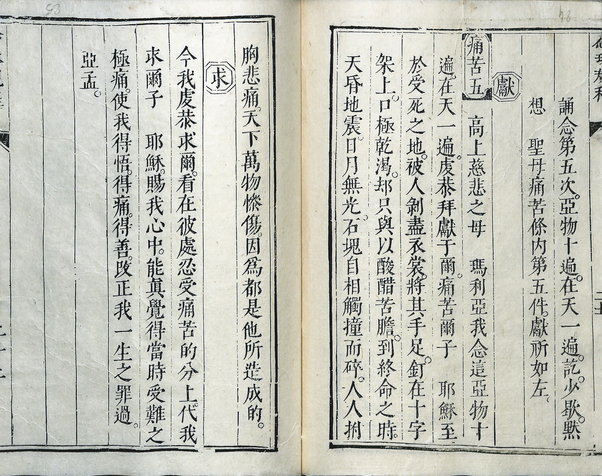 誦念第五次。亞物十遍。在天一遍。訖。少歇。黙
想　聖母痛苦條内第五件。獻祈如左。
獻
痛苦五　高上慈悲之母　瑪利亞我念這亞物十
遍。在天一遍。虔恭拜獻于爾。痛苦爾子　耶穌。至
於受死之地。被人剝盡衣裳。將其手足。釘在十字
架上。口極乾渴。却只與以酸醋苦膽。到終命之時。
天昏地震。日月無光。石塊自相觸撞而碎。人人拊
胸悲痛。天下萬物慘傷。因爲都是他所造成的。
求
今我虔恭求爾。看在彼處忍受痛苦的分上。代我
求爾子　耶穌。賜我心中。能真覺得當時受難之
極痛。使我得悟。得痛。得善。改正我一生之罪過。
亞孟。